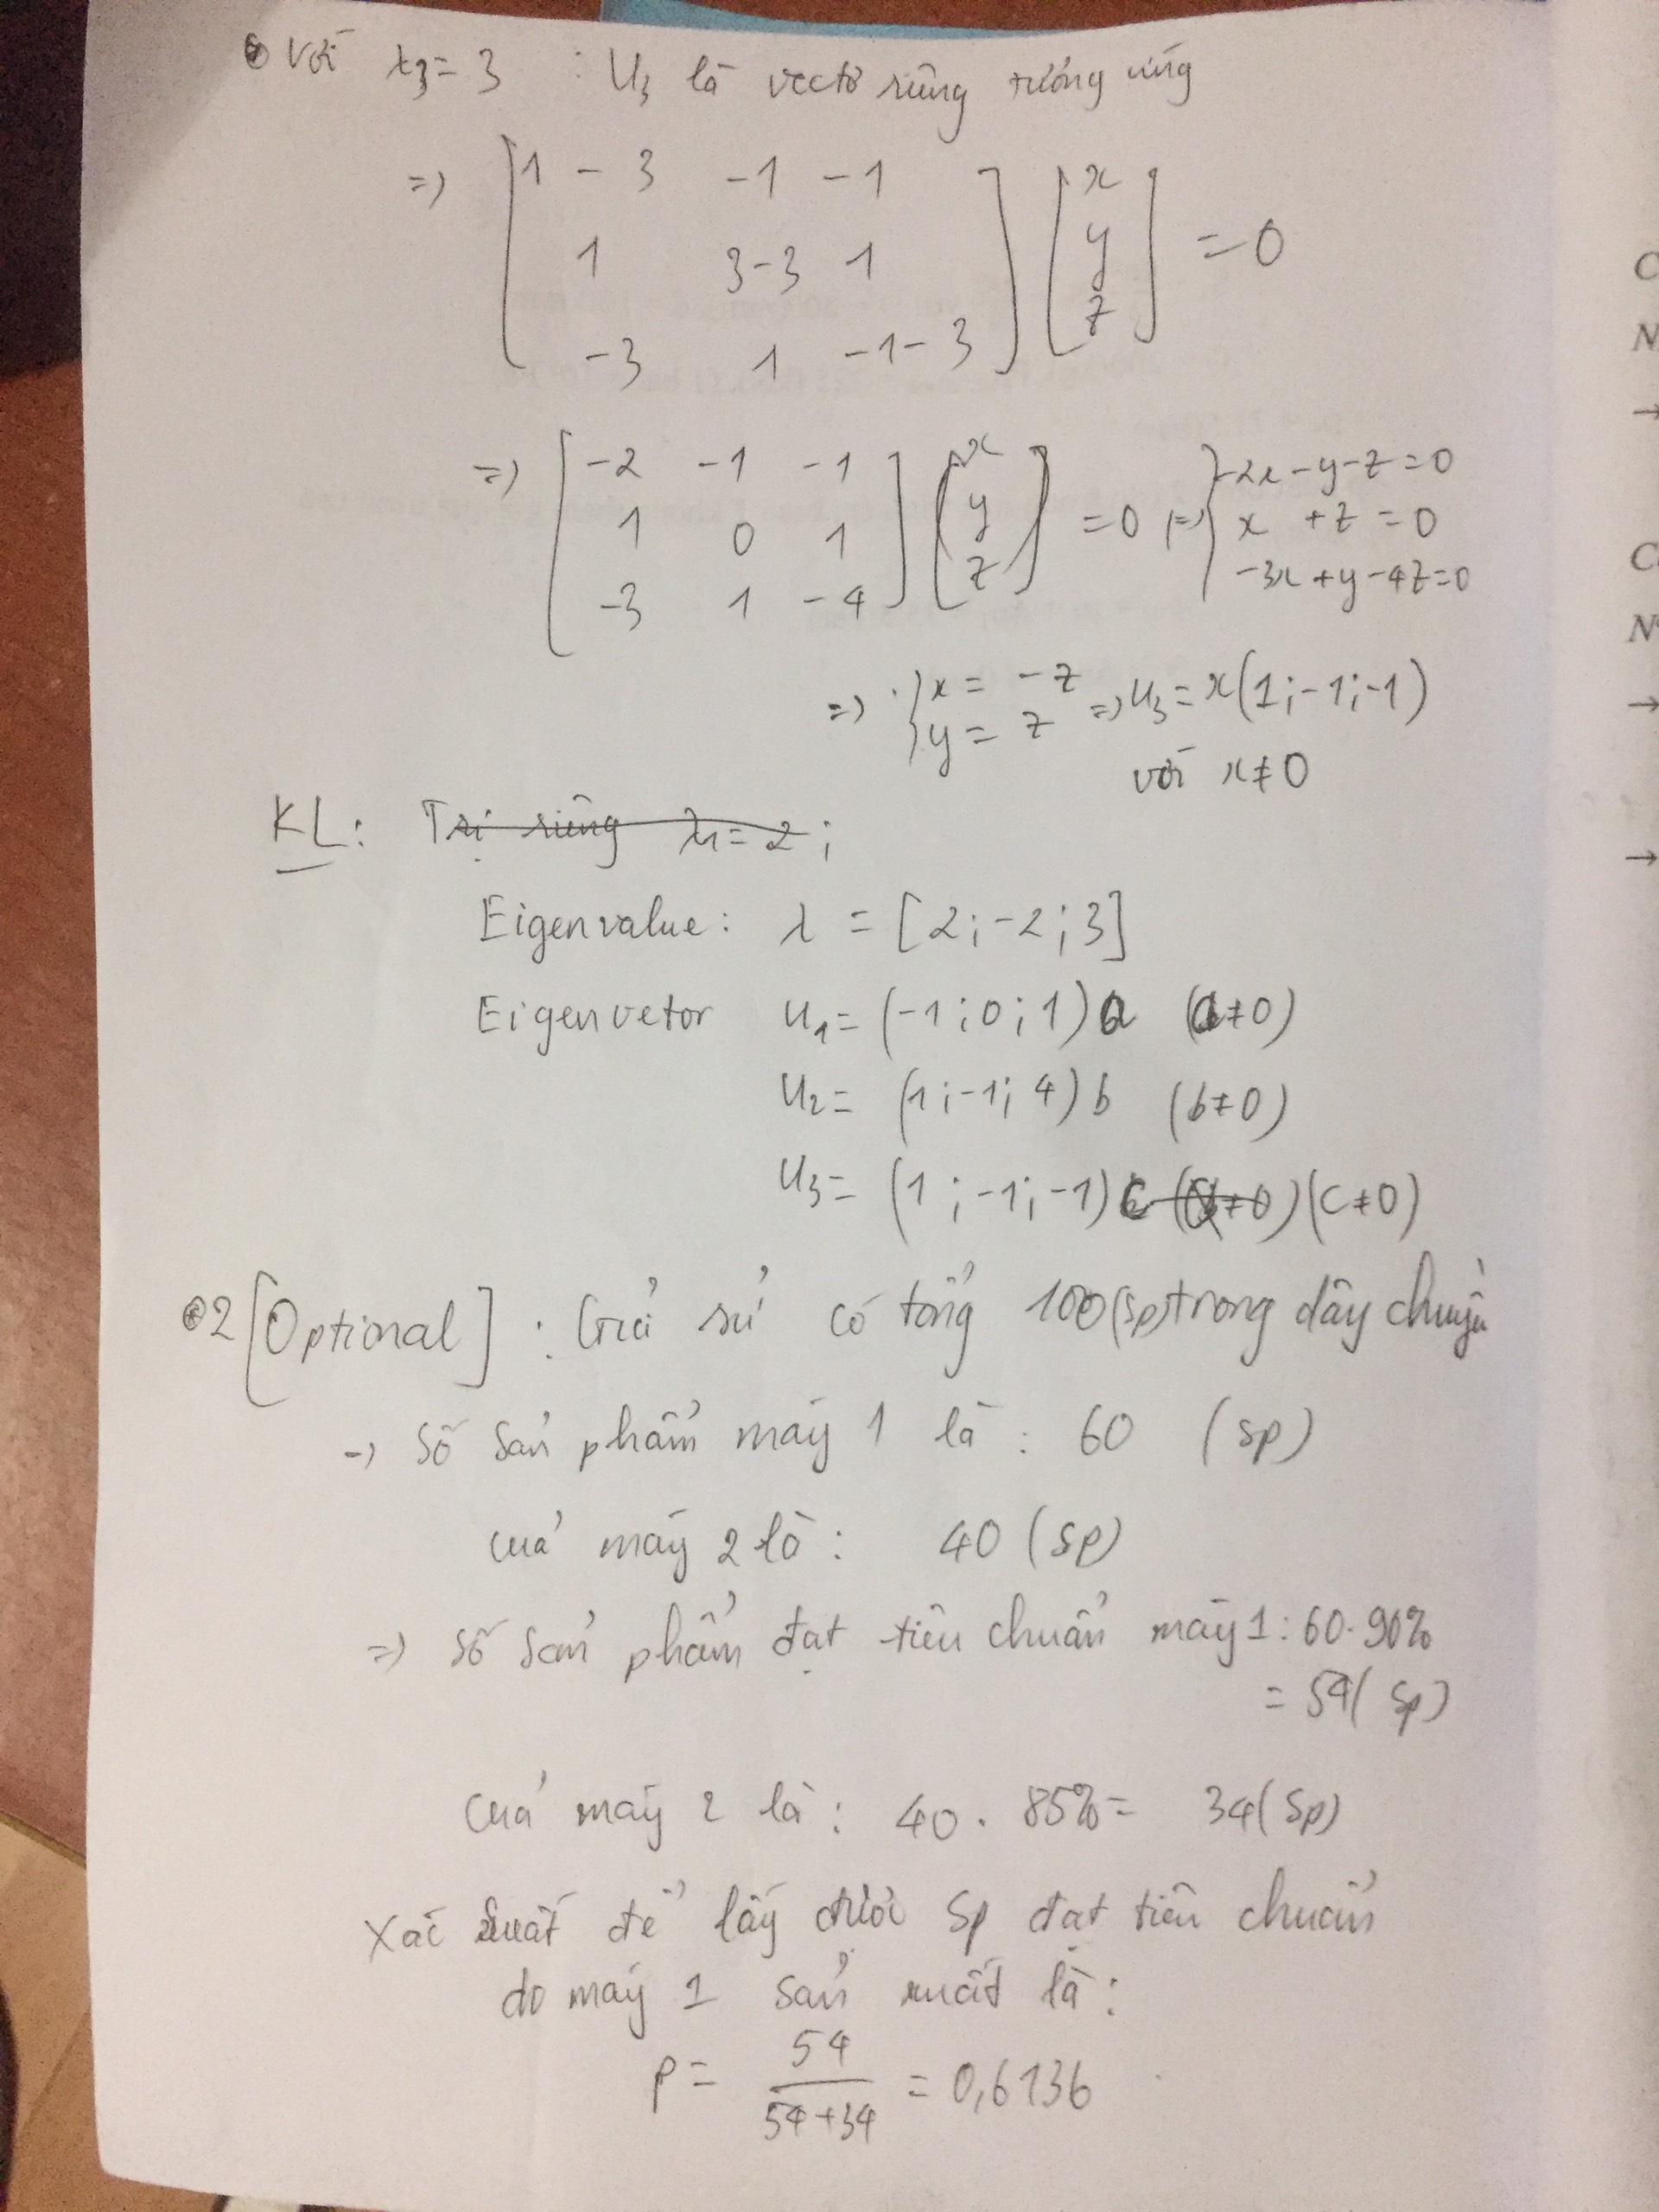 Với λ3 = 3 : U3 là vectơ riêng tương ứng
=> [1 - 3 -1 -1
1 3-3 1
-3 1 -1-3] [x y z] = 0
=> [-2 -1 -1
1 0 1
-3 1 -4] [x y z] = 0 => { -2x - y - z = 0
x + z = 0
-3x + y - 4z = 0
=> { x = - z
y = z => u3 = x(1; -1; -1)
với x ≠ 0
KL: Trị riêng λ1 = 2 ;
Eigenvalue: λ = [2; -2; 3]
Eigenvetor u1 = (-1; 0; 1) a (a ≠ 0)
u2 = (1; -1; 4) b (b ≠ 0)
u3 = (1; -1; -1) c (c ≠ 0)
2 [Optional] : Giả sử có tổng 100 (sp) trong dây chuyền
-> Số sản phẩm máy 1 là : 60 (sp)
của máy 2 là : 40 (sp)
=> Số sản phẩm đạt tiêu chuẩn máy 1 : 60 . 90%
= 54 (sp)
của máy 2 là : 40 . 85% = 34 (sp)
Xác suất để lấy được sp đạt tiêu chuẩn
do máy 1 sản xuất là :
P = 54 / (54+34) = 0,6136
C
N
→
C
N
→
→